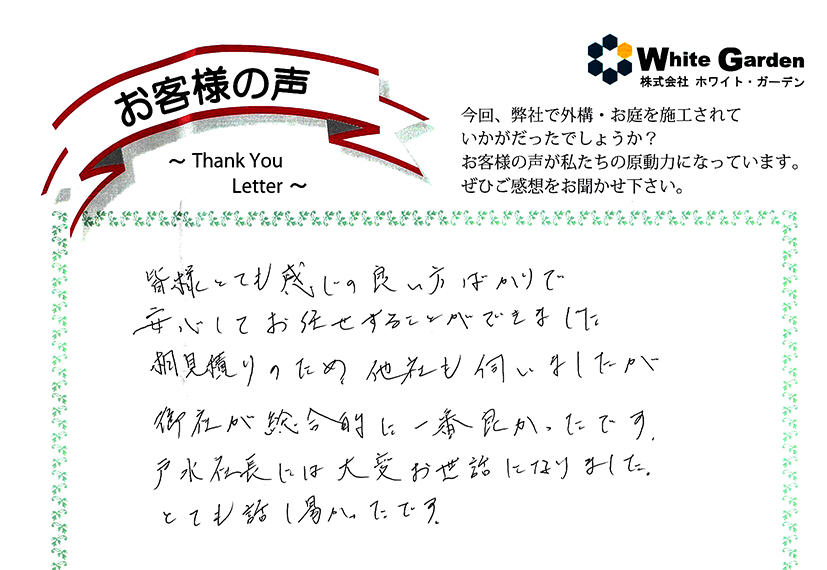 お客様の声
〜 Thank You
Letter 〜
White Garden
株式会社 ホワイト・ガーデン
今回、弊社で外構・お庭を施工されて
いかがだったでしょうか?
お客様の声が私たちの原動力になっています。
ぜひご感想をお聞かせ下さい。
皆様とても感じの良い方ばかりで
安心してお任せすることができました
相見積りのため、他社も伺いましたが
御社が総合的に一番良かったです。
戸水社長には大変お世話になりました。
とても話し易かったです。